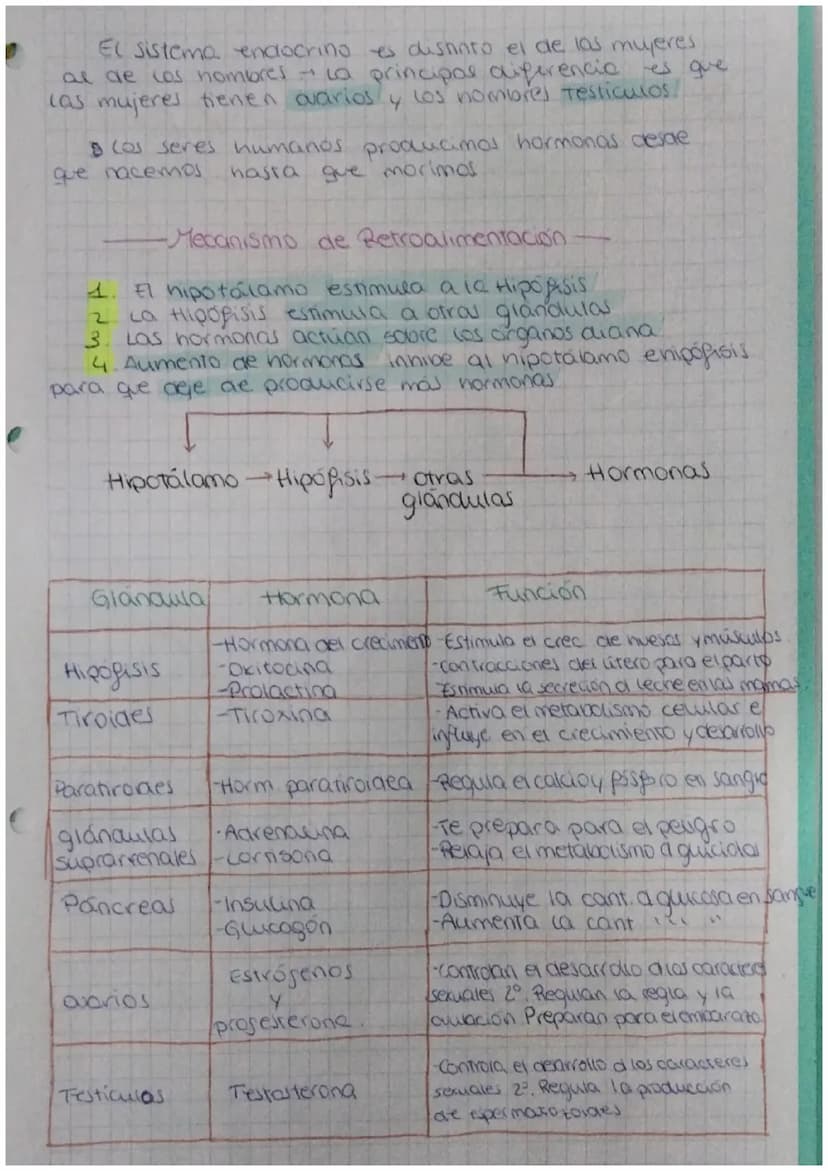 El sistema endocrino es distinto el de las mujeres
al de los hombres → La principal diferencia es que
las mujeres tienen ovarios y los hombres Testículos.
Los seres humanos producimos hormonas desde
que nacemos hasta que morimos
Mecanismo de Retroalimentación
1. El hipotálamo estimula a la Hipófisis
2 La Hipófisis estimula a otras glándulas
3. Las hormonas actúan sobre los órganos diana
4. Aumento de hormonas inhibe al hipotálamo e hipófisis
para que deje de producirse más hormonas
Hipotálamo → Hipófisis → otras → Hormonas
glándulas
Glándula Hormona Función
Hipófisis
-Hormona del crecimento
-Oxitocina
-Prolactina
-Estimula el crec de huesos y músculos
-contracciones del útero para el parto
Estimula la secreción d leche en las mamas.
Tiroides
-Tiroxina
-Activa el metabolismo celular e
influye en el crecimiento y desarrollo
Paratiroides
-Horm paratiroidea
-Regula el calcio y fósforo en sangre
glándulas
suprarrenales
-Adrenalina
-Cortisona
-Te prepara para el peligro
-Relaja el metabolismo d glúcidos
Páncreas
-Insulina
-Glucagón
-Disminuye la cant. d glucosa en sangre
-Aumenta la cant " "
ovarios
Estrógenos
y
progesterona.
-Controlan el desarrollo d los caracteres
sexuales 2º. Regulan la regla y la
ovulación Preparan para el embarazo
Testículos
Testosterona
-Controla el desarrollo d los caracteres
sexuales 2º. Regula la producción
de espermatozoides